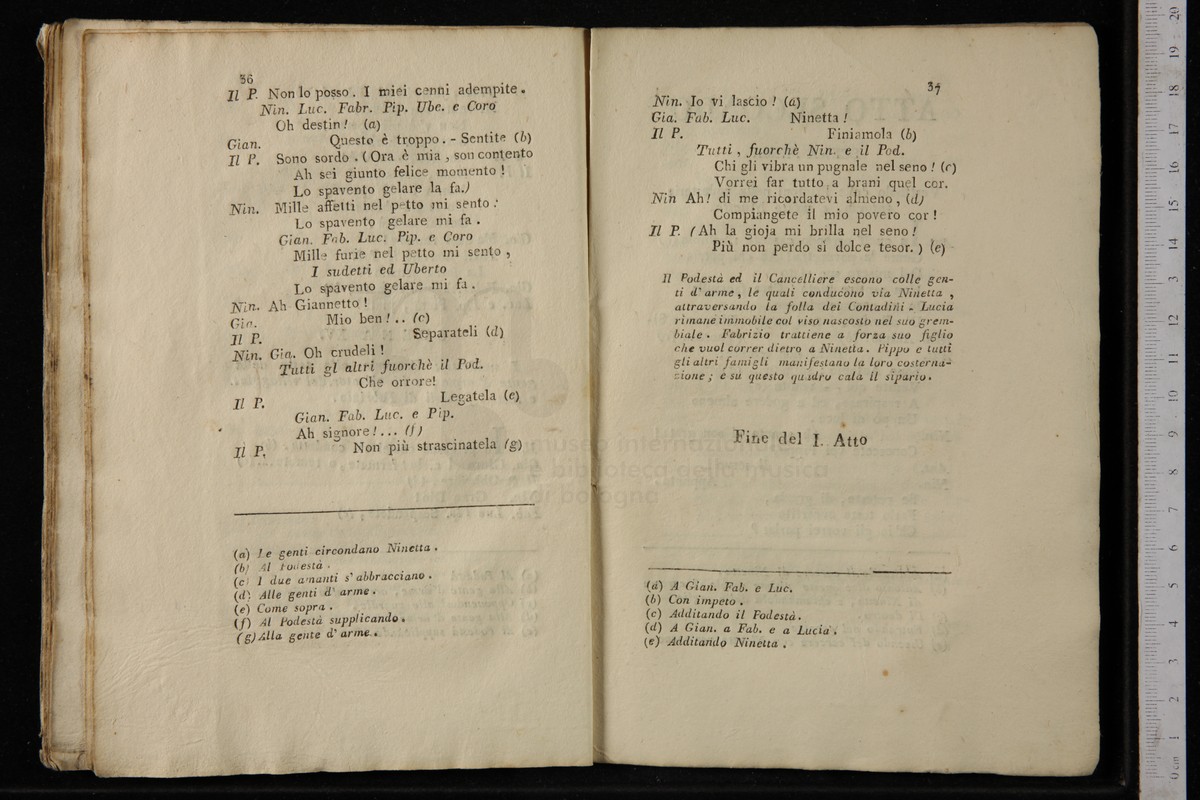 36
Il P. Non lo posso. I miei cenni adempite.
Nin. Luc. Fabr. Pip. Ube. e Coro
Oh destin! (a)
Gian. Questo è troppo. - Sentite (b)
Il P. Sono sordo. (Ora è mia, son contento
Ah sei giunto felice momento!
Lo spavento gelare la fa.)
Nin. Mille affetti nel petto mi sento:
Lo spavento gelare mi fa.
Gian. Fab. Luc. Pip. e Coro
Mille furie nel petto mi sento,
I sudetti ed Uberto
Lo spavento gelare mi fa.
Nin. Ah Giannetto!
Gia. Mio ben!.. (c)
Il P. Separateli (d)
Nin. Gia. Oh crudeli!
Tutti gl altri fuorchè il Pod.
Che orrore!
Il P. Legatela (e)
Gian. Fab. Luc. e Pip.
Ah signore!... (f)
Il P. Non più strascinatela (g)
(a) Le genti circondano Ninetta.
(b) Al Podestà.
(c) I due amanti s' abbracciano.
(d) Alle genti d' arme.
(e) Come sopra.
(f) Al Podestà supplicando.
(g) Alla gente d' arme.
37
Nin. Io vi lascio! (a)
Gia. Fab. Luc. Ninetta!
Il P. Finiamola (b)
Tutti, fuorchè Nin. e il Pod.
Chi gli vibra un pugnale nel seno! (c)
Vorrei far tutto a brani quel cor.
Nin Ah! di me ricordatevi almeno, (d)
Compiangete il mio povero cor!
Il P. (Ah la gioja mi brilla nel seno!
Più non perdo sì dolce tesor.) (e)
Il Podestà ed il Cancelliere escono colle gen-
ti d' arme, le quali conducono via Ninetta,
attraversando la folla dei Contadini - Lucia
rimane immobile col viso nascosto nel suo grem-
biale. Fabrizio trattiene a forza suo figlio
che vuol correr dietro a Ninetta. Pippo e tutti
gli altri famigli manifestano la loro costerna-
zione; e su questo quadro cala il sipario.
Fine del I. Atto
(a) A Gian. Fab. e Luc.
(b) Con impeto.
(c) Additando il Podestà.
(d) A Gian. a Fab. e a Lucia.
(e) Additando Ninetta.
museo internazionale
e biblioteca della musica
di bologna
0 cm 1 2 3 4 5 6 7 8 9 10 11 12 13 14 15 16 17 18 19 20